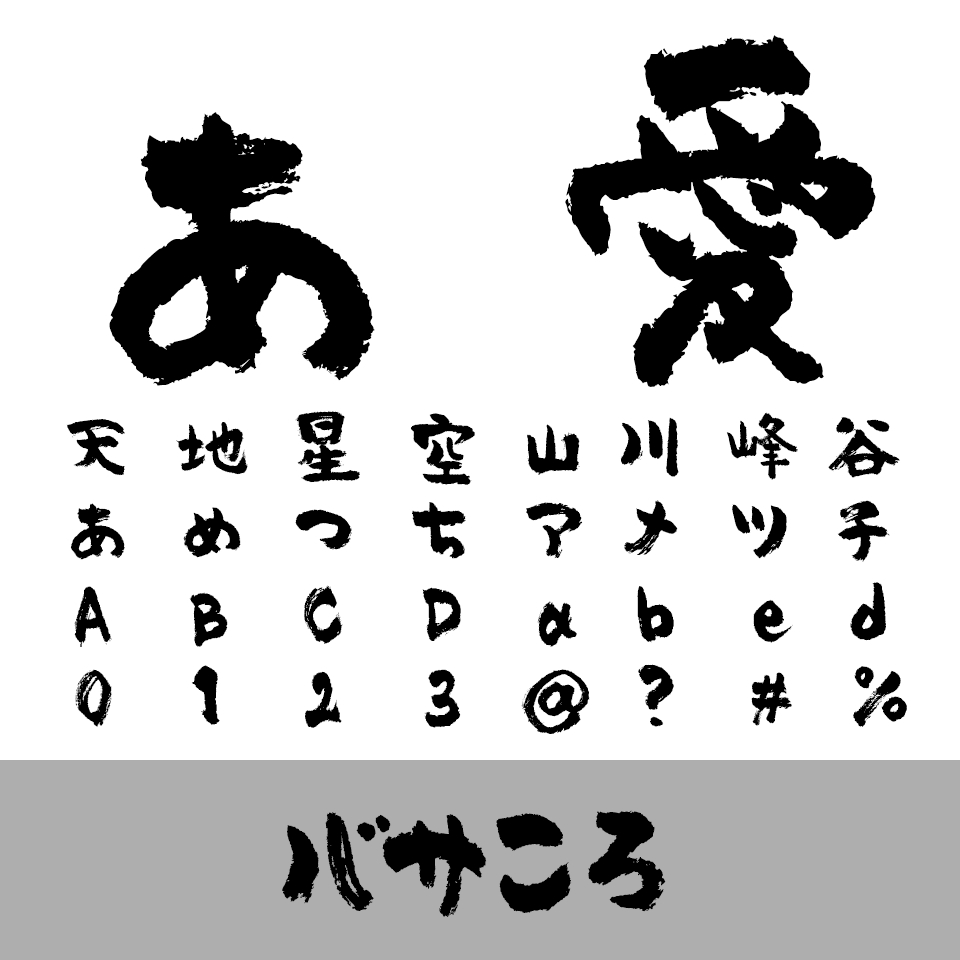 あ 愛
天 地 星 空 山 川 峰 谷
あ め つ ち ア メ ツ チ
A B C D a b e d
0 1 2 3 @ ? # %
バサころ